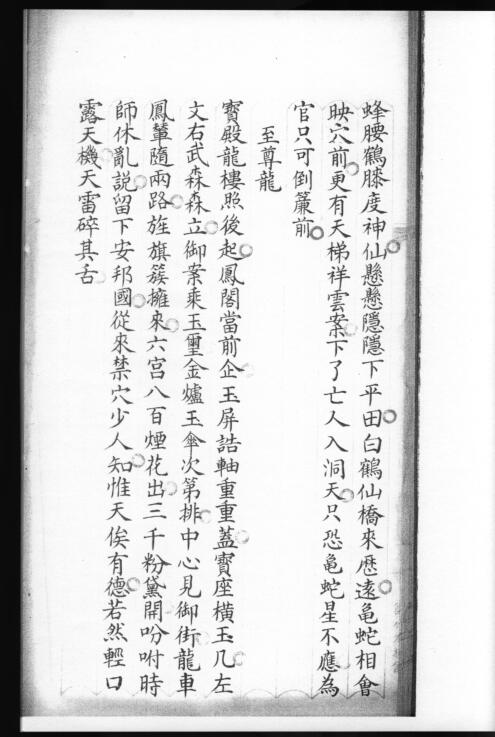 蜂腰鶴膝度神仙懸懸隱隱下平田白鶴仙橋來歷遠龜蛇相會
映穴前更有天梯祥雲案下了亡人入洞天只恐龜蛇星不應為
官只可倒簾前
至尊龍
寶殿龍樓照後起鳳閣當前企玉屏誥軸重重蓋寶座橫玉几左
文右武森森立御案乘玉璽金爐玉傘次第排中心見御街龍車
鳳輦隨兩路旌旗簇擁來六宮八百煙花出三千粉黛開吩咐時
師休亂説留下安邦國從來禁穴少人知惟天俟有德若然輕口
露天機天雷碎其舌